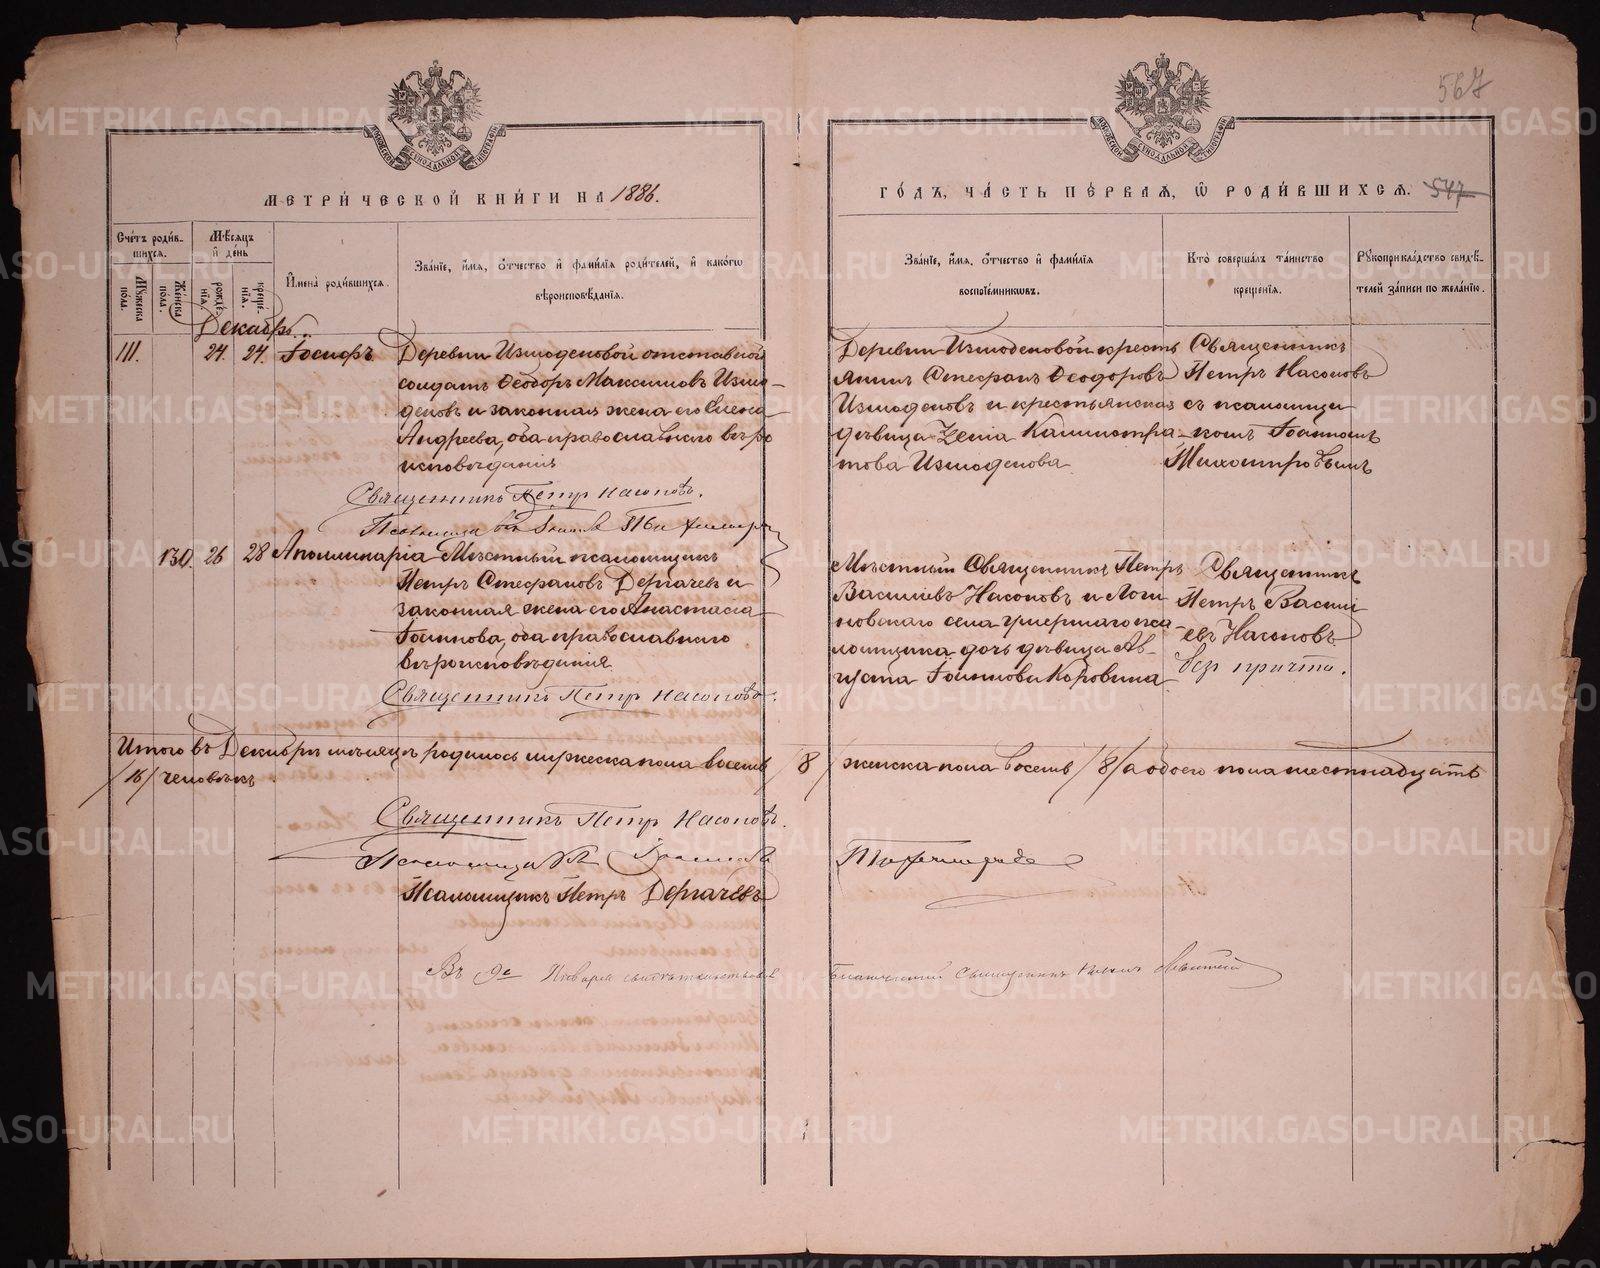 567
МОСКОВСКОЙ СѴНОДАЛЬНОЙ ТИПОГРАФІИ
МОСКОВСКОЙ СѴНОДАЛЬНОЙ ТИПОГРАФІИ
МЕТРИ́ЧЕСКОЙ КНИ́ГИ НА 1886.
ГО́ДЪ, ЧА́СТЬ ПЕ́РВАѦ, Ѡ҆ РОДИ́ВШИХСѦ. 547
Сче́тъ роди́в-
шихсѧ.
Мꙋ́жеска пола.
Же́нска пола.
Мѣ́сѧцъ
и҆ де́нь
рожде́-
нїѧ.
креще́-
нїѧ.
И҆мена̀ роди́вшихсѧ.
Зва́нїе, и҆́мѧ, ѻ҆́тчество и҆ фами́лїѧ роди́телей, и҆ како́гѡ
вѣроисповѣ́данїѧ.
Зва́нїе, и҆́мѧ, ѻ҆́тчество и҆ фами́лїѧ
воспрїе́мникѡвъ.
Кто̀ соверша́лъ та́инство
креще́нїѧ.
Рꙋкоприкла́дство свидѣ́-
телей за́писи по жела́нїю.
Декабрь.
111. 24. 24. Іосифъ
Деревни Измоденовой отставной
солдатъ Ѳеодоръ Максимовъ Измо-
деновъ и законная жена его Елена
Андреева, оба православнаго вѣро
исповѣданія
Священникъ Петр Насоновъ.
Деревни Измоденовой кресть
янинъ Стефанъ Ѳеодоровъ
Измоденовъ и крестьянская
дѣвица Ксенія Каллистра-
това Измоденова
Священникъ
Петръ Насоновъ
съ псаломщи
комъ Іоанномъ
130. 26 28 Аполлинарія
Мѣстный псаломщикъ
Петръ Стефановъ Дергачевъ и
законная жена его Анастасія
Іоаннова, оба православнаго
вѣроисповѣданія.
Священникъ Петр Насоновъ.
Мѣстный Священникъ Петръ
Васильевъ Насоновъ и Логи
новскаго села умершаго пса
ломщика дочь дѣвица Ав-
густа Іоаннова Коровина
Священникъ
Петръ Васил
евъ Насоновъ
без причта.
Итого въ Декабрѣ мѣсяцѣ родилось мужеска пола восемь / 8 / женска пола восемь /8/ а обоего пола шестнадцать
/16/ человѣкъ.
Священникъ Петр Насоновъ.
Псаломщикъ Іоаннъ
Псаломщикъ Петръ Дергачевъ
Въ 9е Января свидѣтельствовалъ Благочинный Священникъ
METRIKI.GASO-URAL.RU